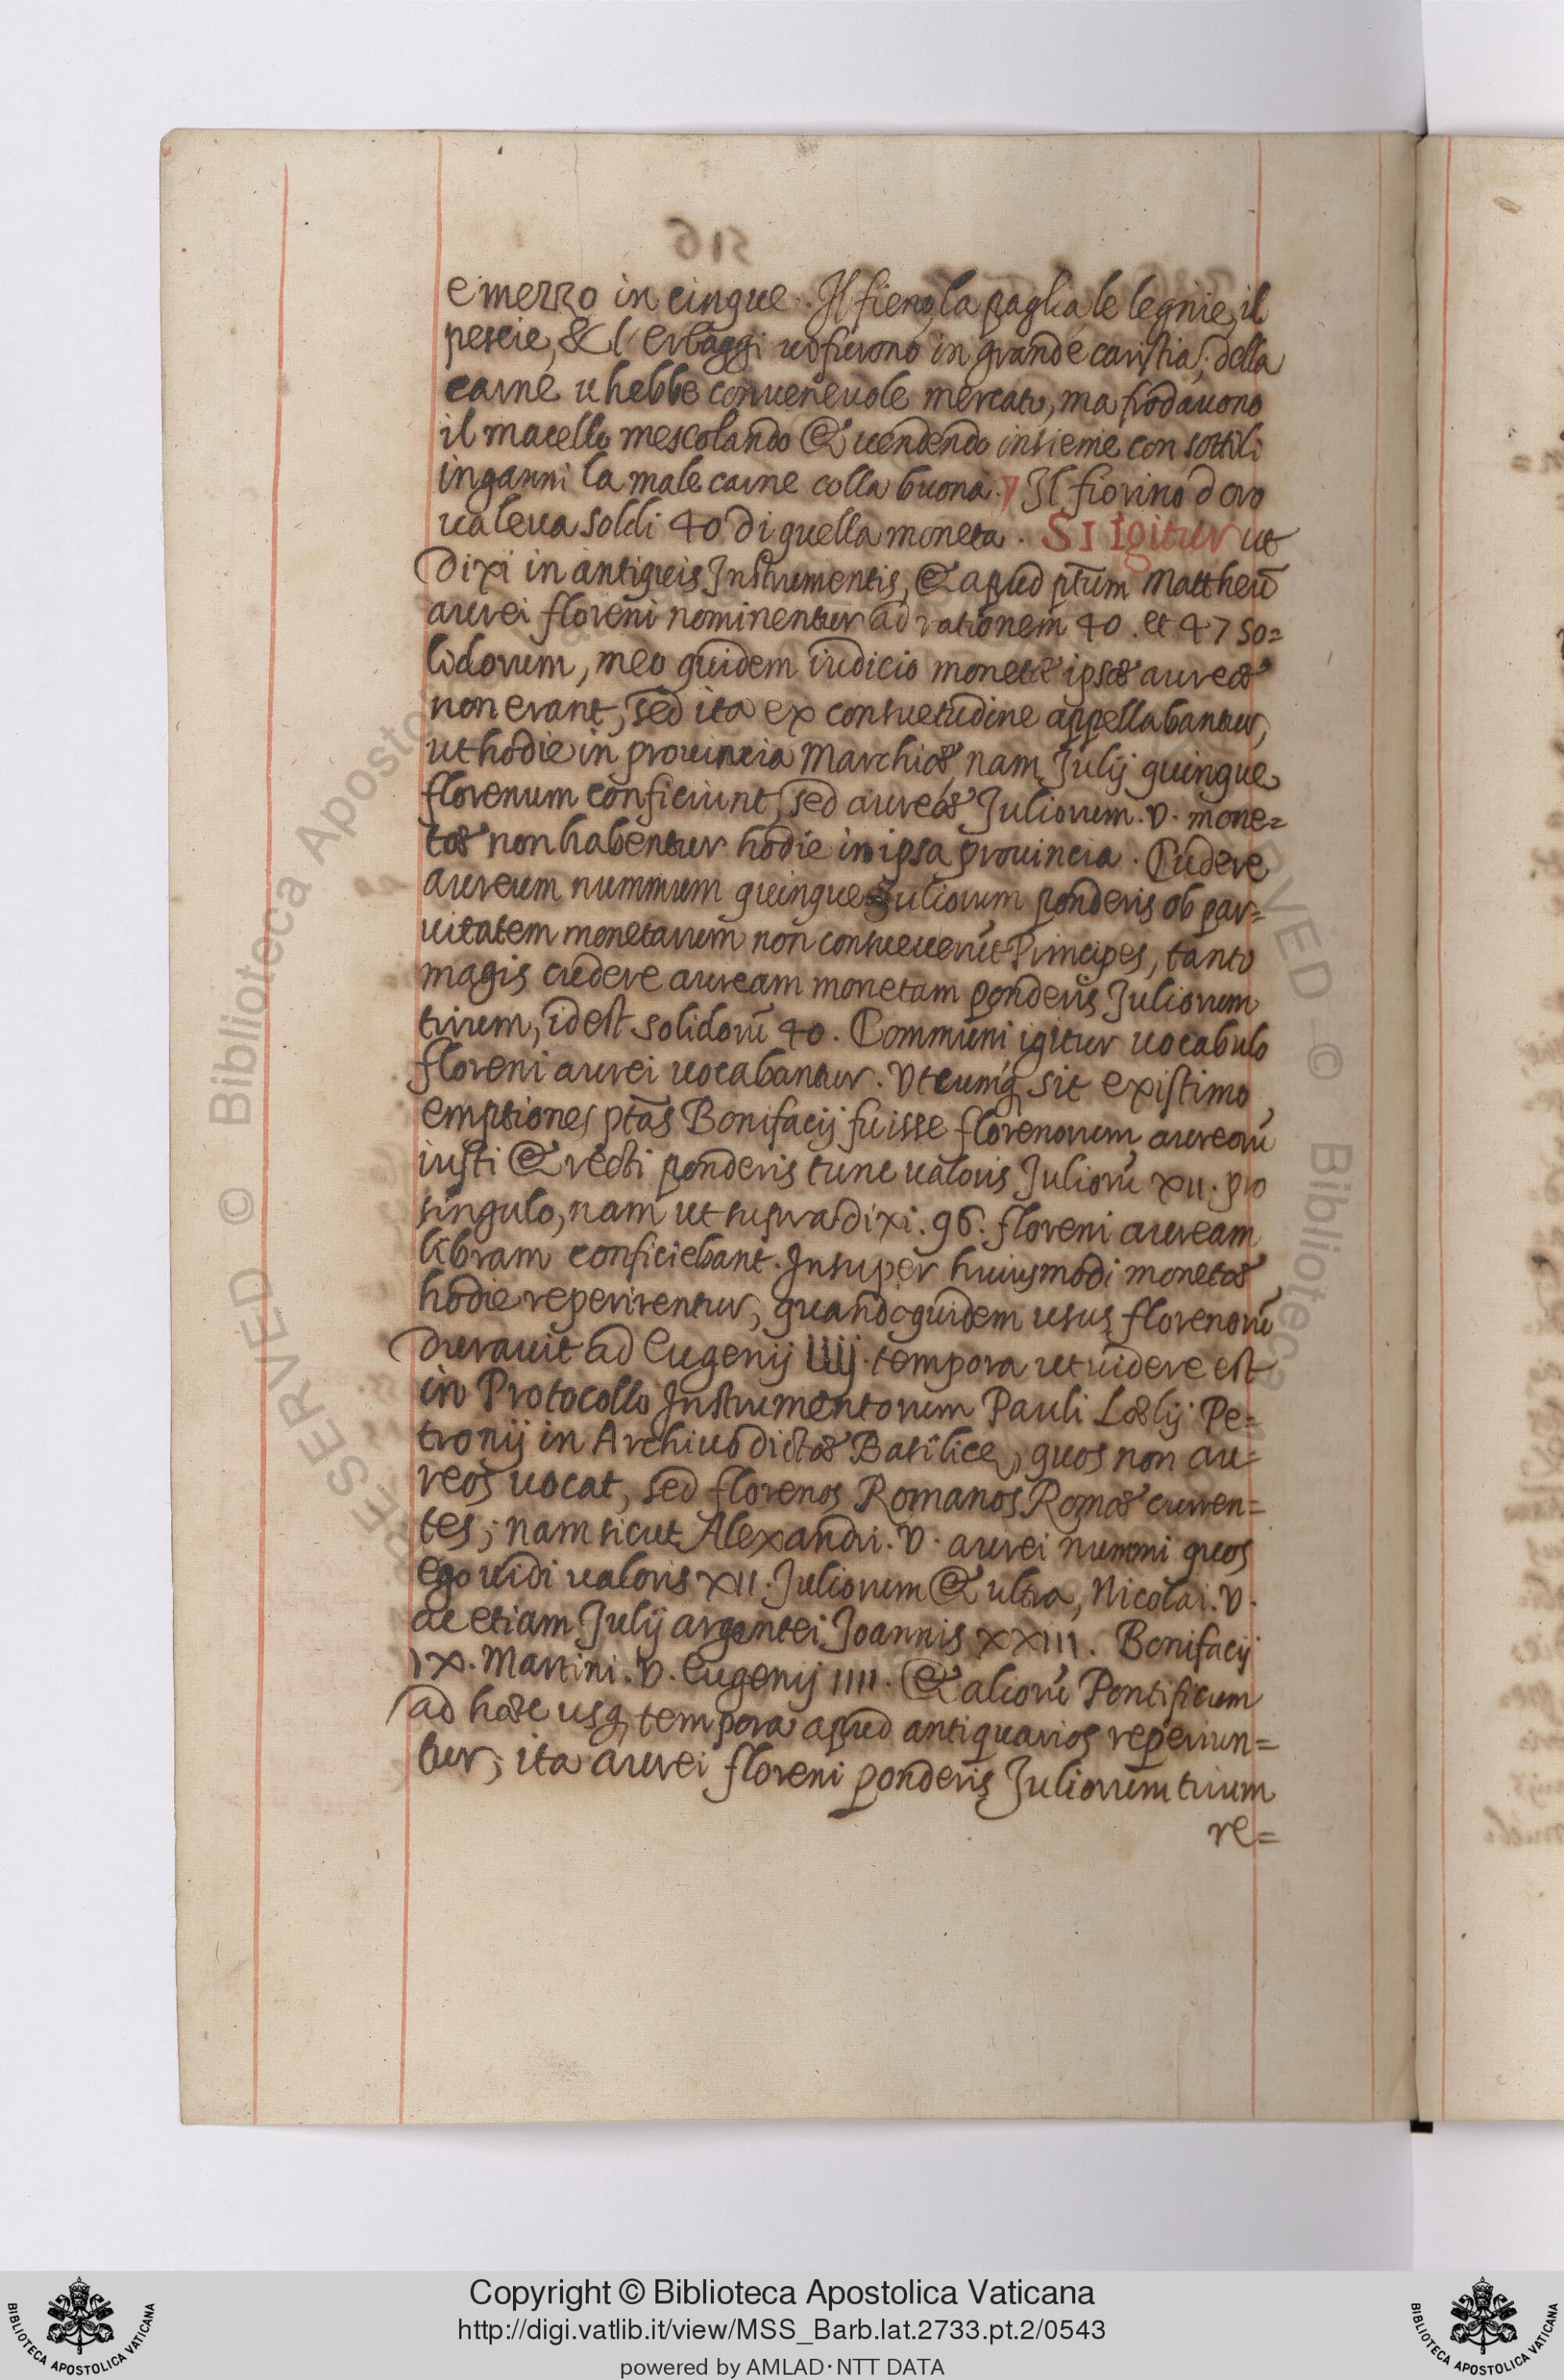 e mezzo in cinque. Il fieno, la paglia, le legnie, il
pescie, & l'erbaggi ui furono in grande caristia; della
carne u hebbe conueneuole mercato, ma frodauono
il macello mescolando & uendendo insieme con sottili
inganni la male carne colla buona. Il fiorino d oro
ualeua soldi 40 di quella moneta. SI Igitur ut
dixi in antiquis Instrumentis, & apud ptum Mattheū
aurei floreni nominentur ad rationem 40. et 47 so=
lidorum, meo quidem iudicio monetæ ipsæ aureæ
non erant, sed ita ex consuetudine appellabantur,
ut hodie in prouincia Marchiæ, nam Iulij quinque
florenum conficiunt, sed aureæ Iuliorum. V. mone=
tæ non habentur hodie in ipsa prouincia. Cudere
aureum nummum quinque Iuliorum ponderis ob par=
uitatem monetarum non consueuerūt Principes, tanto
magis cudere auream monetam ponderis Iuliorum
trium, idest solidorū 40. Communi igitur uocabulo
floreni aurei uocabantur. Vtcumq sit existimo
emptiones ptas Bonifacij fuisse florenorum aureorū
iusti & recti ponderis tunc ualoris Iuliorū XII. pro
singulo, nam ut supra dixi. 96. floreni auream
libram conficiebant. Insuper huiusmodi monetæ
hodie reperirentur, quandoquidem usus florenorū
durauit ad Eugenij iiij. tempora ut uidere est
in Protocollo Instrumentorum Pauli Lælij Pe=
tronij in Archiuo dictæ Basilicę, quos non au=
reos uocat, sed florenos Romanos Romæ curren=
tes; nam sicut Alexandri. V. aurei nummi quos
ego uidi ualoris XII. Iuliorum & ultra, Nicolai. V.
ac etiam Iulij argentei Joannis XXIII. Bonifacij
IX. Martini. V. Eugenij IIII. & aliorū Pontificum
ad hæc usq tempora apud antiquarios reperiun=
tur; ita aurei floreni ponderis Iuliorum trium
re=
RESERVED © Biblioteca Aposto
RVED © Biblioteca
Copyright © Biblioteca Apostolica Vaticana
http://digi.vatlib.it/view/MSS_Barb.lat.2733.pt.2/0543
powered by AMLAD·NTT DATA
BIBLIOTECA APOSTOLICA VATICANA
BIBLIOTECA APOSTOLICA VATICANA